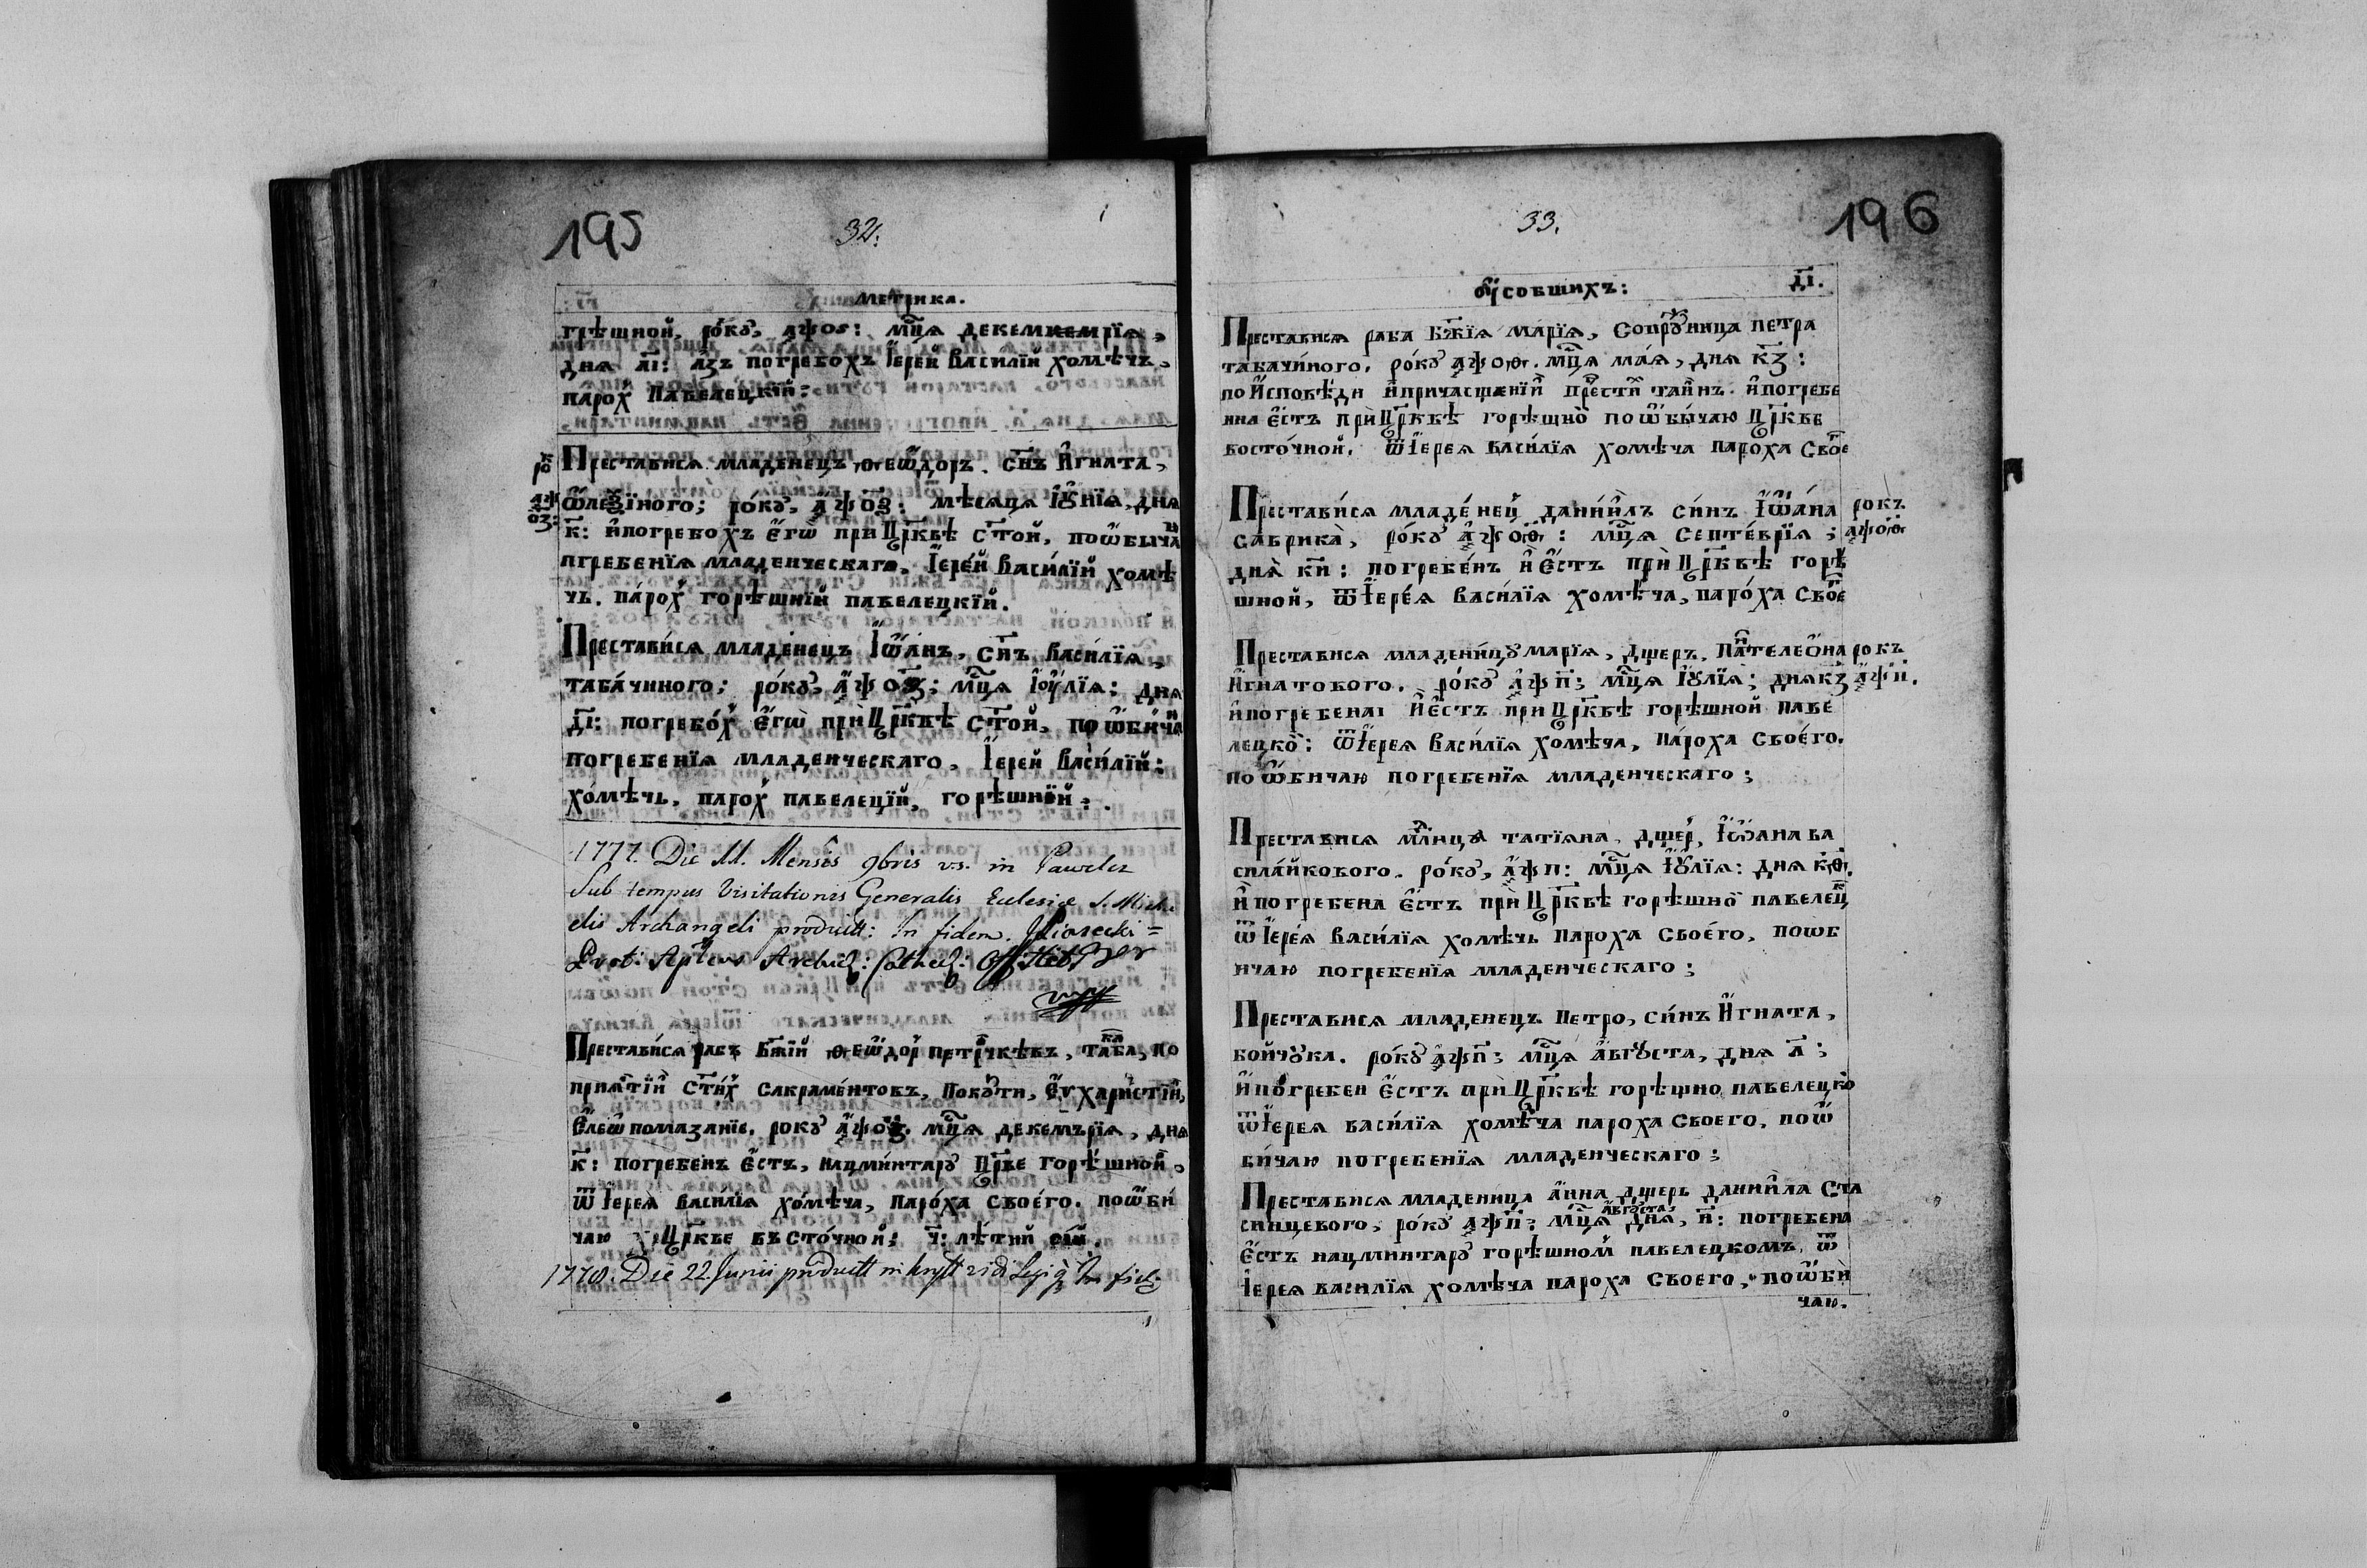 195
32.
метрика.
грѣшной, ро́кꙋ, аѱоѕ: мц҃а декемкемрїѧ,
днѧ а҃і: а́зъ погребохъ Іерей Василїй хомѣчъ,
парох Павелецкїй:
Преставися младенецъ ѳеѡ̑доръ. сн҃ъ Игната,
ѡ̑леѯїного; ро́кꙋ, аѱо҃з: мѣсяца іꙋнїѧ, днѧ
рок
аѱ
оз:
к҃: и̑погребохъ є̑гѡ̀ при Цр҃квѣ ст҃ой, поѡ̑быча
пгребенїѧ младенческаго. Іере́й Васи́лїй хомѣ
чь. па́рох горѣшнїй павелецкїй.
Преставися младенецъ Іѡ̑а́нъ, сн҃ъ Васи́лїѧ,
таба́чиного; ро́кꙋ, аѱо҃з; мц҃а іоу́лїѧ: днѧ
д҃і: погребо́х є̑гѡ̀ прѝ Цр҃квѣ ст҃ой, поѡ̑би́чаи
погребенїѧ младенческаго, Іерей Васи́лїй:
хо́мѣчь, парох павелеції, горѣшнїй:
1777. Die 11. Mensis 9bris v.s. in Pawelcz
Sub tempus Visitationis Generalis Eclesiæ S. Micha
elis Archangeli produxtt: In fidem. J Piasecki =
Prot: Aptcus Archid: Cathed: Off:
Преста́вися рабъ Бж҃їй ѳеѡ̑дор петрчкѣвъ, таба, по
прия́тїи ст҃и́х сакраме́нтовъ, Покꙋти, є̑ѵхари́стїи,
Єлеѡ̑помазанїе. рокꙋ аѱоз. мц҃а декемърїѧ, днѧ
к҃: погребе́нъ є̑стъ, нацми́нтарꙋ Цр҃ве горѣ́шной,
ѿ Іерея̀ Васи́лїѧ хо́мѣча, паро́ха своего. поѡ̑би́
чаю Цр҃кве въсто́чной; ч҃: лѣ́тнй сы́й.
1778. Die 22. Junii produxtt
33.
196
оу҆совшихъ:
д҃і.
Преставися раба Бж҃їѧ Марїѧ, Сопрꙋница петра
табачи́ного, ро́кꙋ аѱоѳ. мц҃а ма́ѧ, днѧ к҃з:
по Исповѣ́ди и̑причасщенїи прест҃и таи̑нъ. и̑погребе
нна є̑стъ прѝ Цр҃квѣ горѣшно̀ поѡ̑бы́чаю Цр҃кве
восто́чной. ѿІерея Васи́лїѧ хомѣча пароха Свое̑
Престави́ся младе́нец дании̑лъ си́нъ Іѡ̑а́на
сабрика̀, ро́кꙋ аѱоѳ: мц҃а Септе́врїѧ;
рокъ
аѱоѳ
дня̀ к҃и: погребе́нъ и̑ є̑стъ прѝ Цр҃квѣ горѣ
шной, ѿІере́я Васи́лїѧ хомѣ́ча, паро́ха Свое̑
Преставися младени́цꙋ марїѧ, дщеръ, Пантелео́на
Игнатового. ро́кꙋ аѱп҃; мц҃а Іꙋлїѧ; днѧ к҃з
рокъ
аѱп.
и̑погребена и̑є̑стъ при Цр҃квѣ горѣшной паве
лецко̀: ѿІерея Васи́лїѧ хомѣча, па́роха своего.
по ѡ̑бичаю погребенїѧ младенческаго;
Преставися млдницꙋ татїяна, дщер, Іѡ̑ана ва
сила́йкового. ро́кꙋ, аѱп: мц҃а Іꙋлїѧ: дня кѳ.
и̑ погребена є̑стъ прѝ Цр҃квѣ горѣшно̀ павелецк
ѿ Іере́я Васи́лїя хомѣ́чь пароха своего, поѡб
ичаю погребенїѧ младенческаго;
Преставися младенецъ Петро, си́нъ Игната,
войчꙋка. ро́кꙋ аѱп҃; мц҃а а̑вгꙋста, дня л҃;
и̑погребен є̑стъ прѝ Цр҃квѣ горѣшно, павелецко̀
ѿІерея васи́лїя хомѣ́ча пароха своего, поѡ̑
би́чаю погребенїѧ младенческаго;
Преставися младеница а̑нна дщерь даниила Ста
синцевого, ро́кꙋ аѱп҃: мц҃а августа, дня, и҃: погребена
є̑стъ нацминтарꙋ горѣшном павелецкомъ, ѿ
Іерея василїѧ хомѣча пароха своего, поѡ̑би̑
чаю.